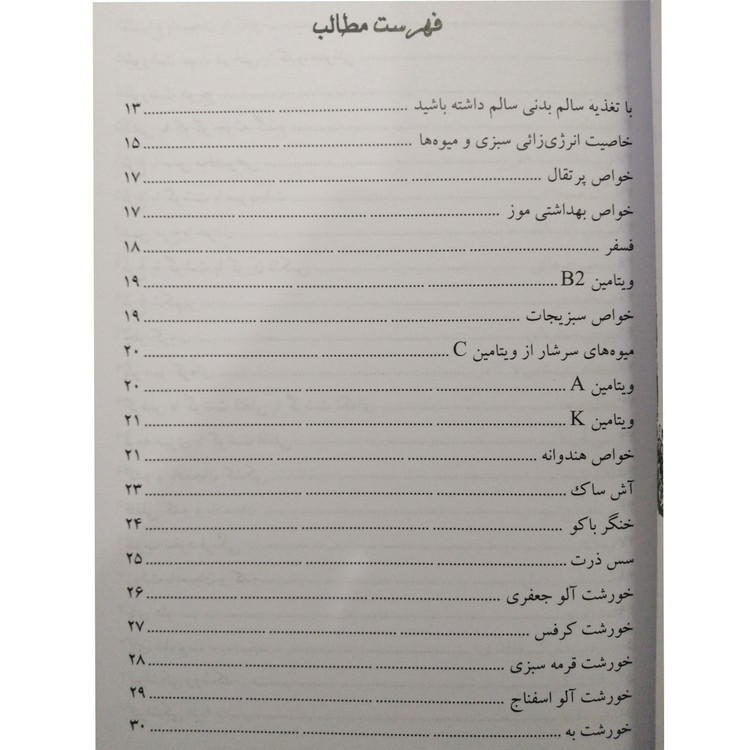 فهرست مطالب
با تغذیه سالم بدنی سالم داشته باشید ۱۳
خاصیت انرژی‌زائی سبزی و میوه‌ها ۱۵
خواص پرتقال ۱۷
خواص بهداشتی موز ۱۷
فسفر ۱۸
ویتامین B2 ۱۹
خواص سبزیجات ۱۹
میوه‌های سرشار از ویتامین C ۲۰
ویتامین A ۲۰
ویتامین K ۲۱
خواص هندوانه ۲۱
آش ساک ۲۳
خنگر باکو ۲۴
سس ذرت ۲۵
خورشت آلو جعفری ۲۶
خورشت کرفس ۲۷
خورشت قرمه سبزی ۲۸
خورشت آلو اسفناج ۲۹
خورشت به ۳۰